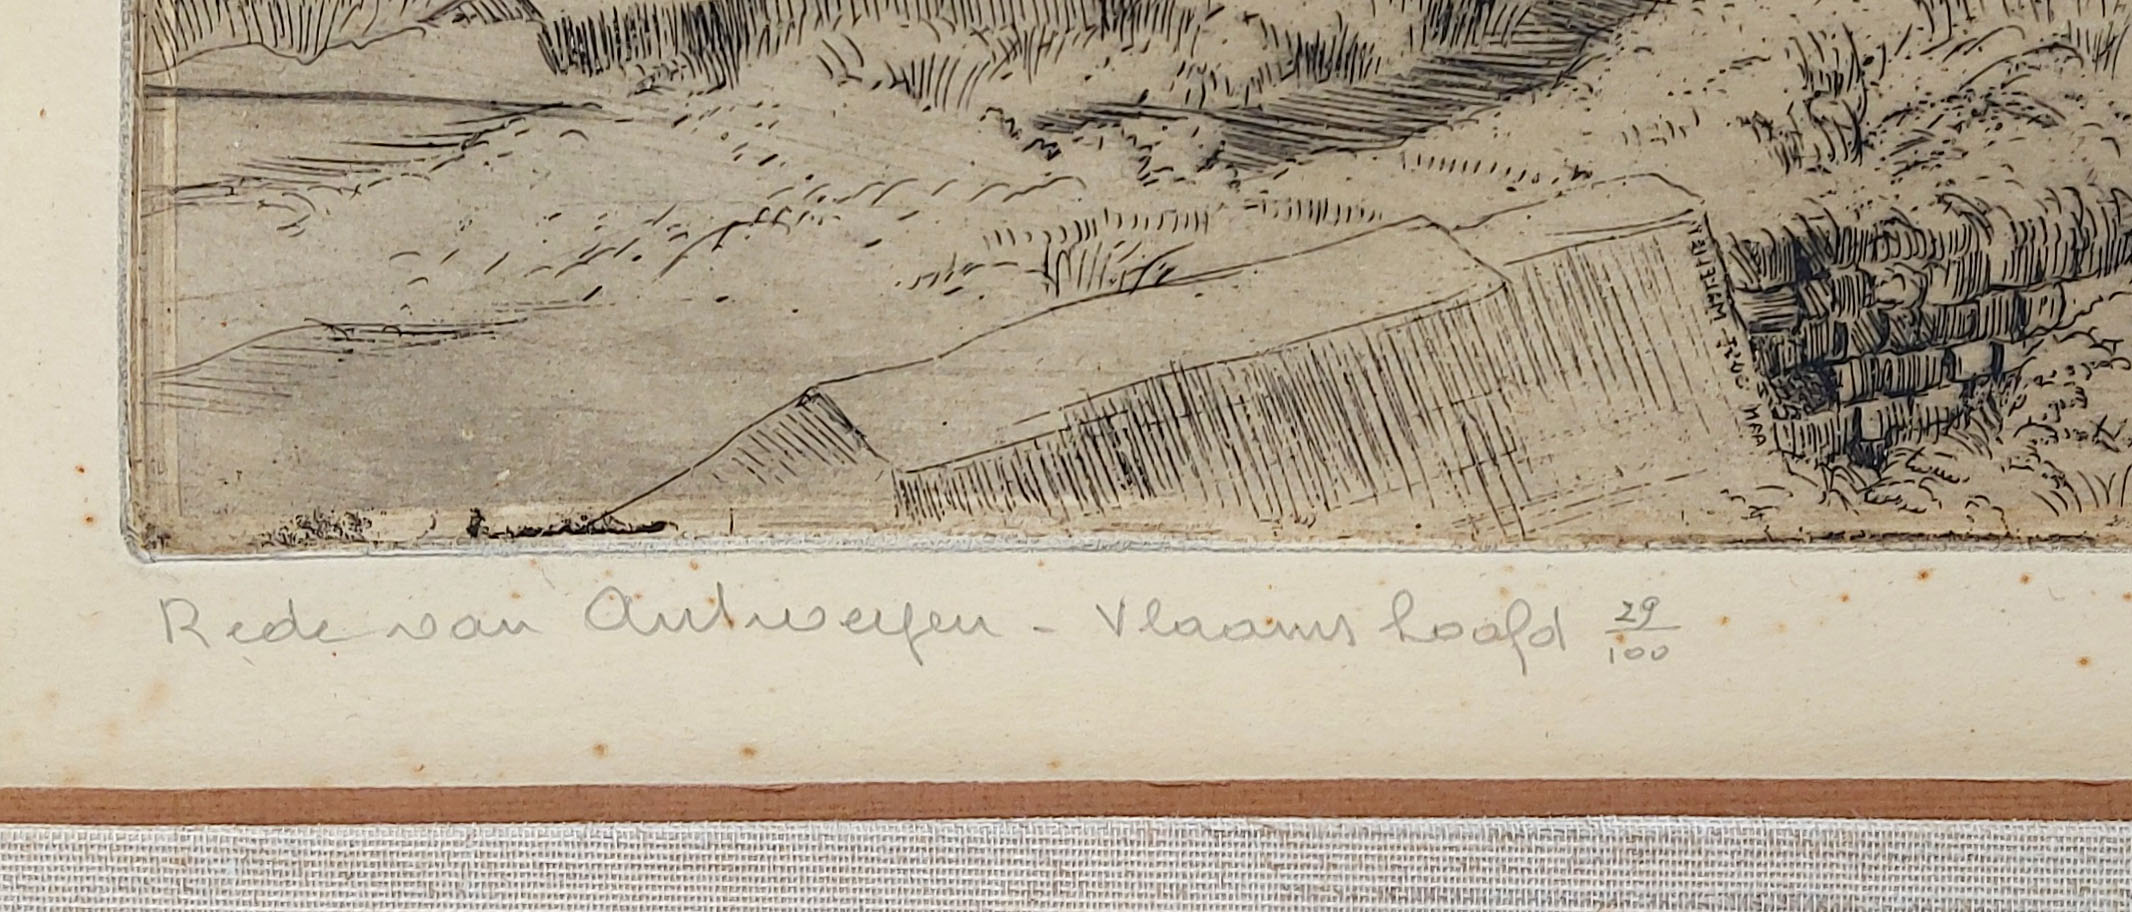 Rede van Antwerpen - Vlaams hoofd 29/100